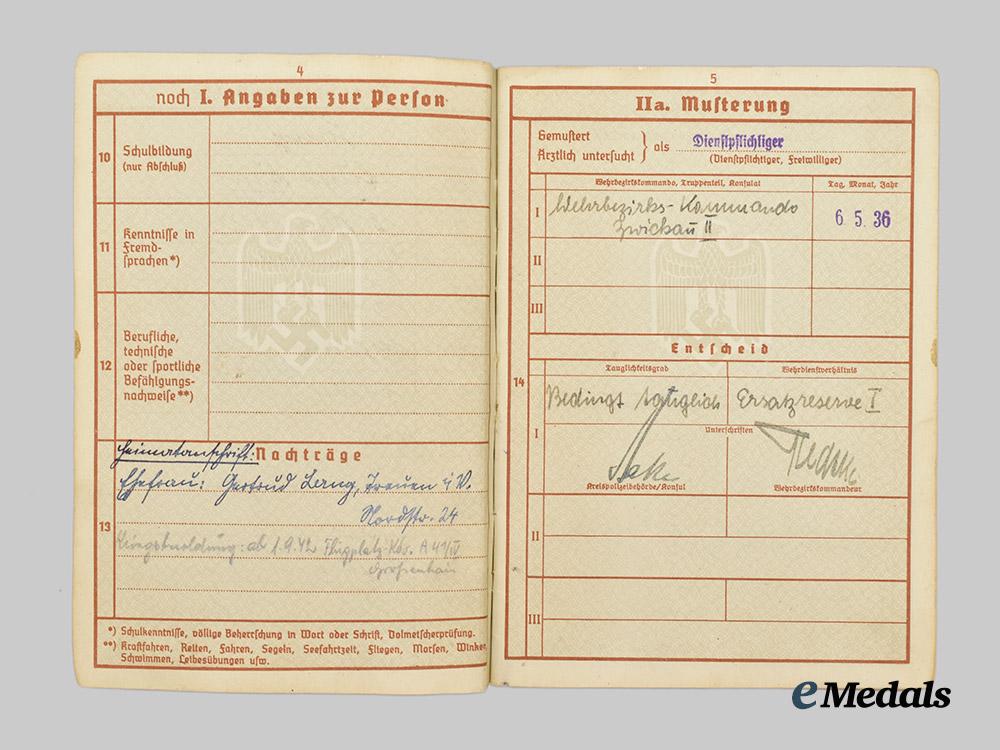 4
noch I. Angaben zur Person
10
Schulbildung
(nur Abschluß)
11
Kenntnisse in
Fremd-
sprachen*)
12
Berufliche,
technische
oder sportliche
Befähigungs-
nachweise**)
Heimatanschrift: Nachträge
Ehefrau: Gertrud Lang, Treuen i/V.
Nordstr. 24
13
Kriegsbesoldung: ab 1.9.42 Flugplatz-Kdo. A 41/IV
Großenhain
*) Schulkenntnisse, völlige Beherrschung in Wort oder Schrift, Dolmetscherprüfung.
**) Kraftfahren, Reiten, Fahren, Segeln, Seefahrtzeit, Fliegen, Morsen, Winken,
Schwimmen, Leibesübungen usw.
5
IIa. Musterung
Gemustert
Ärztlich untersucht } als Dienstpflichtiger
(Dienstpflichtiger, Freiwilliger)
Wehrbezirkskommando, Truppenteil, Konsulat
Tag, Monat, Jahr
I
Wehrbezirks-Kommando
Zwickau II
6. 5. 36
II
III
Entscheid
14
Tauglichkeitsgrad
Wehrdienstverhältnis
Bedingt tauglich
Ersatzreserve I
I
Unterschriften
Kreispolizeibehörde/Konsul
Wehrbezirkskommandeur
II
III
eMedals